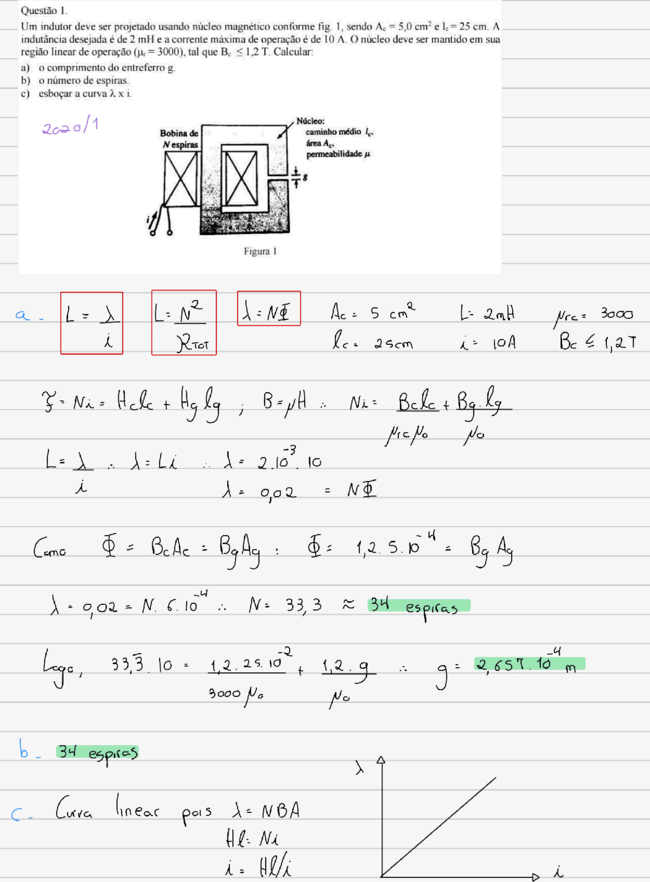 Questão 1.
Um indutor deve ser projetado usando núcleo magnético conforme fig. 1, sendo Ac = 5,0 cm² e lc = 25 cm. A
indutância desejada é de 2 mH e a corrente máxima de operação é de 10 A. O núcleo deve ser mantido em sua
região linear de operação (μr = 3000), tal que Bc ≤ 1,2 T. Calcular:
a) o comprimento do entreferro g.
b) o número de espiras.
c) esboçar a curva λ x i.
2020/1
Bobina de
N espiras
Núcleo:
caminho médio lc,
área Ac,
permeabilidade μ
g
i
Figura 1
a - L = λ/i L = N²/RTOT λ = NΦ Ac = 5 cm² L = 2mH μrc = 3000
lc = 25cm i = 10A Bc ≤ 1,2T
F = Ni = Hclc + Hglg ; B = μH ∴ Ni = Bclc/μrcμ0 + Bg.lg/μ0
L = λ/i ∴ λ = Li ∴ λ = 2.10⁻³.10
λ = 0,02 = NΦ
Como Φ = BcAc = BgAg : Φ = 1,2.5.10⁻⁴ = BgAg
λ = 0,02 = N.6.10⁻⁴ ∴ N = 33,3 ≈ 34 espiras
Logo, 33,3̄.10 = 1,2.25.10⁻²/3000μ0 + 1,2.g/μ0 ∴ g = 2,657.10⁻⁴ m
b - 34 espiras
c - Curva linear pois λ = NBA
Hl = Ni
i = Hl/i
λ
i